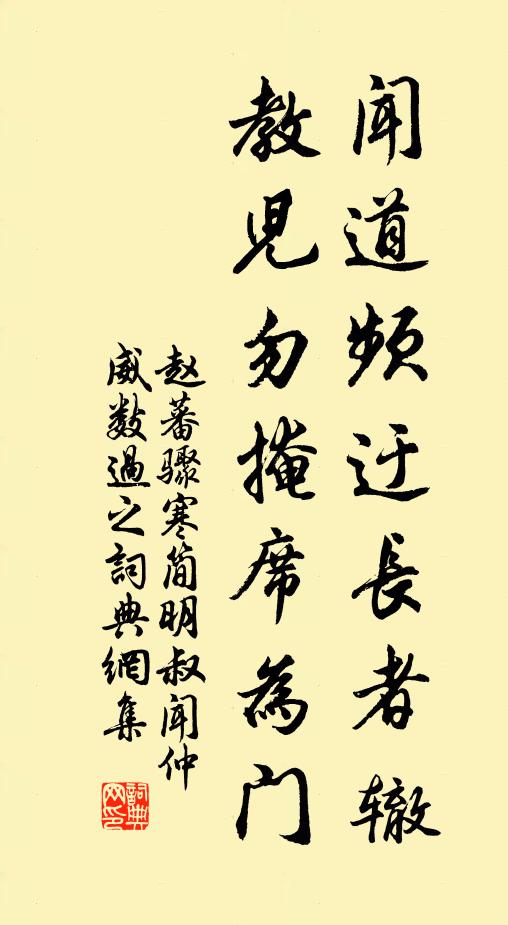 闻道频迂長者辙
教児勿掩席為门
赵蕃骤寒简明叔闻仲
威数過之詞典網集
詞典
网